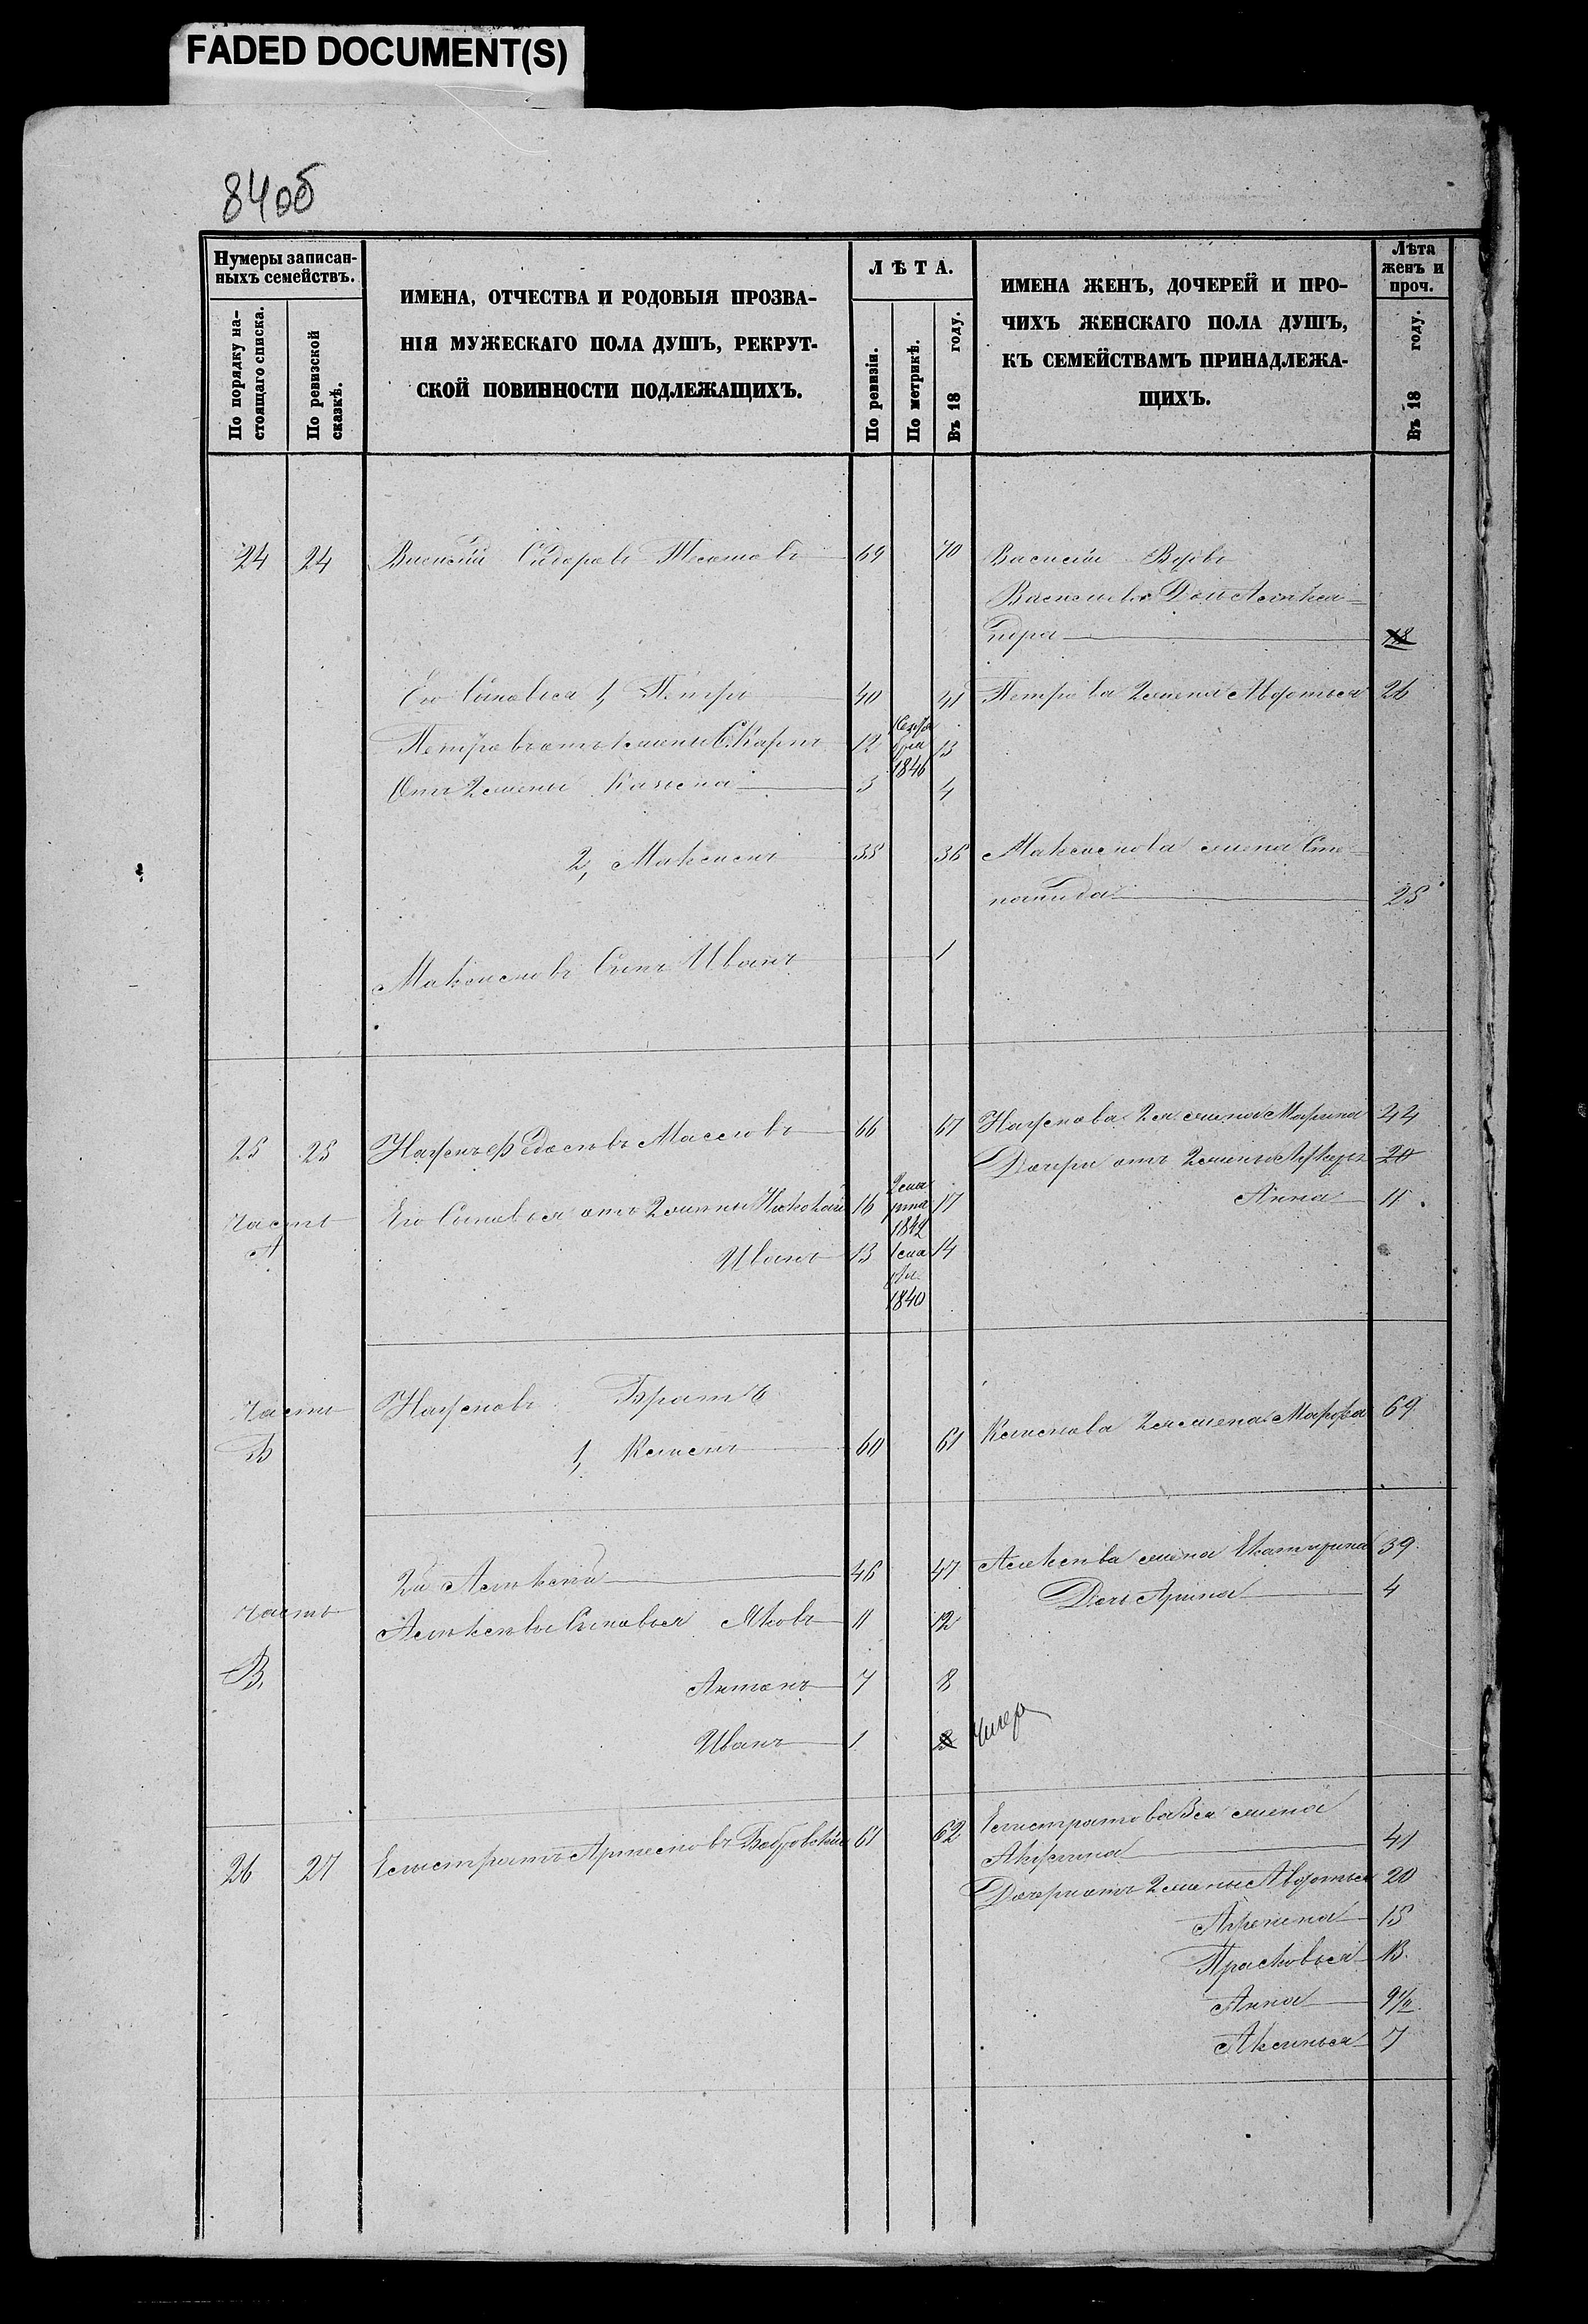 FADED DOCUMENT(S)
84об
Нумеры записан-
ныхъ семействъ.
По порядку на-
стоящаго списка.
По ревизской
сказкѣ.
ИМЕНА, ОТЧЕСТВА И РОДОВЫЯ ПРОЗВА-
НІЯ МУЖЕСКАГО ПОЛА ДУШЪ, РЕКРУТ-
СКОЙ ПОВИННОСТИ ПОДЛЕЖАЩИХЪ.
ЛѢТА.
По ревизіи.
По метрикѣ.
Въ 18 году.
ИМЕНА ЖЕНЪ, ДОЧЕРЕЙ И ПРО-
ЧИХЪ ЖЕНСКАГО ПОЛА ДУШЪ,
КЪ СЕМЕЙСТВАМЪ ПРИНАДЛЕЖА-
ЩИХЪ.
Лѣта
женъ и
проч.
Въ 18 году.
24 24 Василій Сидоровъ 69 70 Василій Вдовъ
Васильева Дочь Алексан=
дра
Его Сыновья 1, Петръ 40 41 Петрова 2 жена Авдотья 26
Петровъ отъ 1 жены Карпъ 12 13
1846
Отъ 2 жены 3 4
2, Максимъ 35 36 Максимова жена Сте
панида 25
Максимовъ Сынъ Иванъ 1
25 25 Наумъ Федосѣевъ Масловъ 66 67 Наумова 2я жена Марина 44
Дочери отъ 2 жены 20
Часть А Его Сыновья отъ 2 жены Николай 16 17 Анна 11
1842
Иванъ 13 14
1840
Часть Наумовъ Братъ
Б 1, Климъ 60 61 Климова 2я жена Марфа 69
2й Алексѣй 46 47 Алексѣева жена Екатерина 39
Дочь Арина 4
Часть Алексѣевы Сыновья Яковъ 11 12
В. Антонъ 7 8
Иванъ 1 умеръ
26 27 Елистратъ Артемовъ Бобровскій 61 62 Елистратова 3я жена
Акулина 41
Дочери отъ 2 жены Авдотья 20
15
Прасковья 13
Анна 9½
Аксинья 7